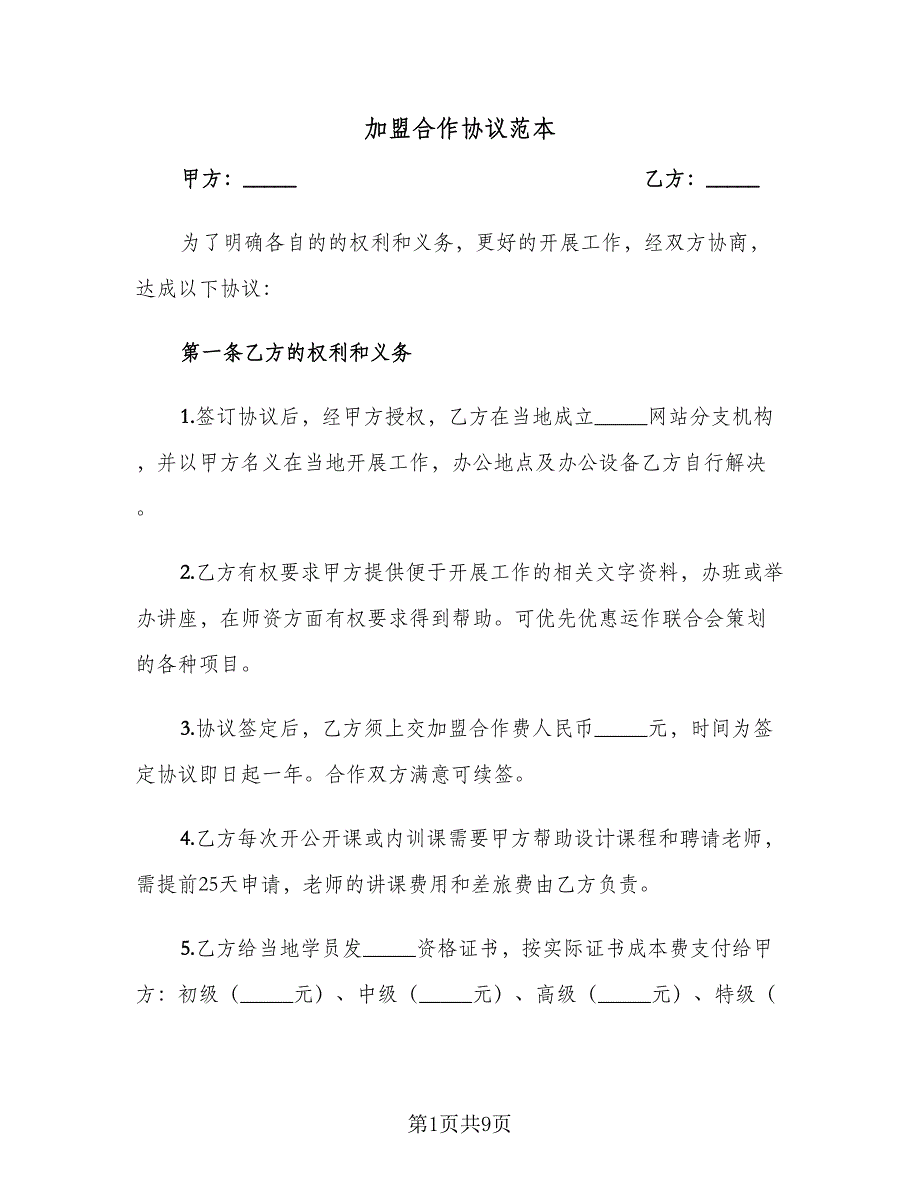 加盟合作协议范本
甲方：_____ 乙方：_____
为了明确各自的的权利和义务，更好的开展工作，经双方协商，
达成以下协议：
第一条乙方的权利和义务
1.签订协议后，经甲方授权，乙方在当地成立_____网站分支机构
，并以甲方名义在当地开展工作，办公地点及办公设备乙方自行解决
。
2.乙方有权要求甲方提供便于开展工作的相关文字资料，办班或举
办讲座，在师资方面有权要求得到帮助。可优先优惠运作联合会策划
的各种项目。
3.协议签定后，乙方须上交加盟合作费人民币_____元，时间为签
定协议即日起一年。合作双方满意可续签。
4.乙方每次开公开课或内训课需要甲方帮助设计课程和聘请老师，
需提前25天申请，老师的讲课费用和差旅费由乙方负责。
5.乙方给当地学员发_____资格证书，按实际证书成本费支付给甲
方：初级（_____元）、中级（_____元）、高级（_____元）、特级（
第1页共9页